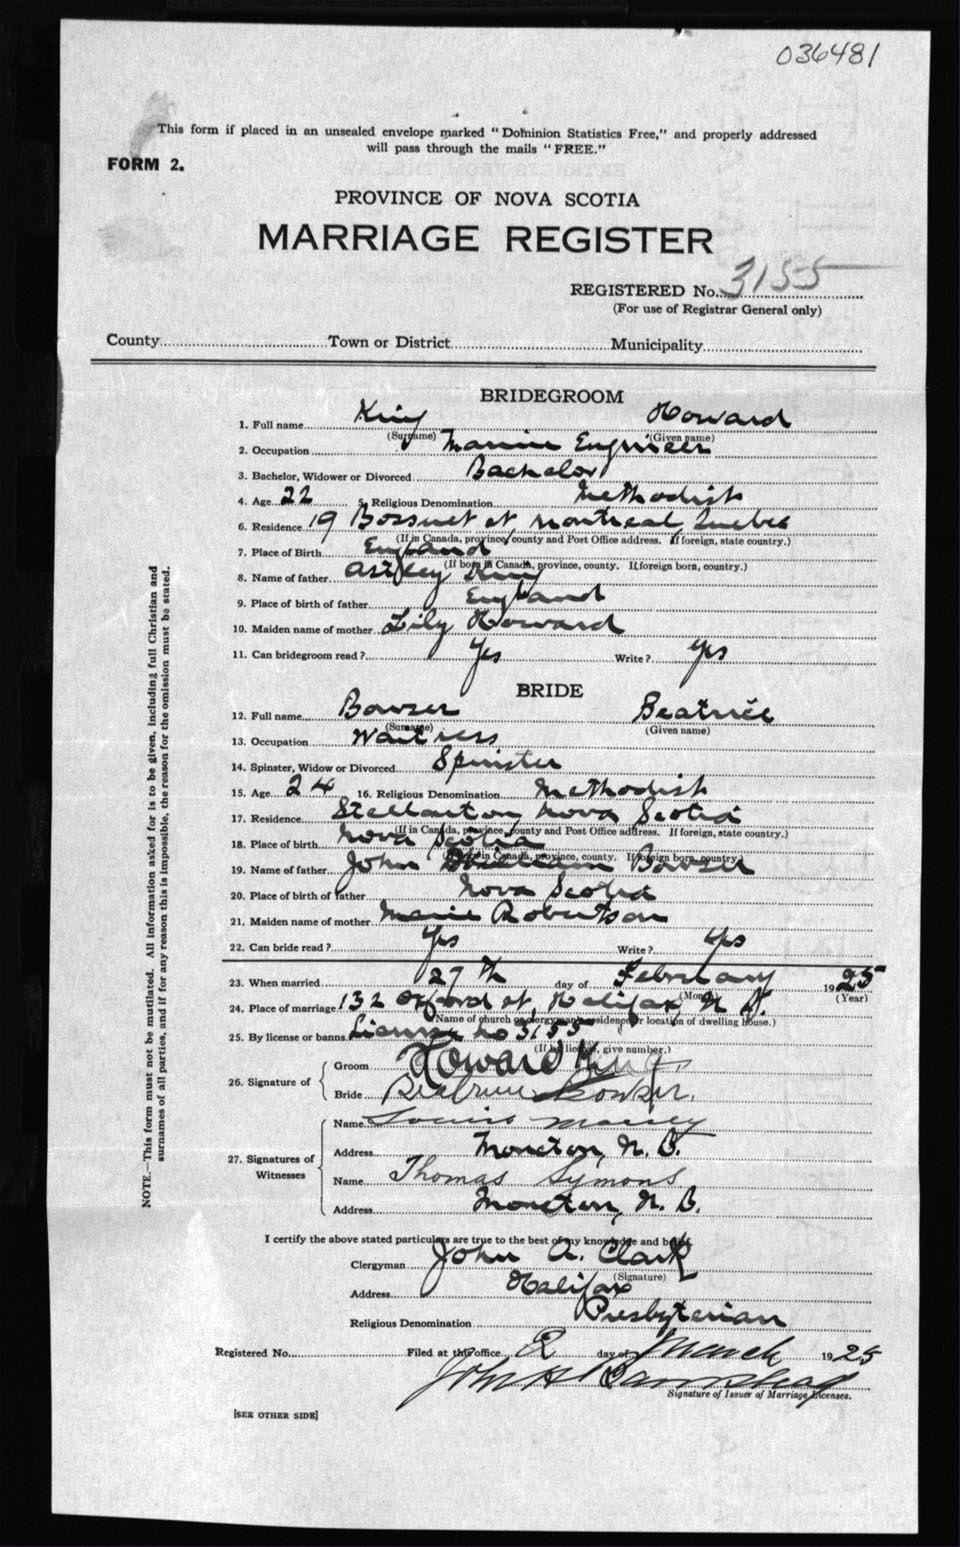 036481
This form if placed in an unsealed envelope marked "Dominion Statistics Free," and properly addressed
will pass through the mails "FREE."
FORM 2.
PROVINCE OF NOVA SCOTIA
MARRIAGE REGISTER
REGISTERED No. 3155
(For use of Registrar General only)
County Town or District Municipality
BRIDEGROOM
1. Full name King Howard
(Surname) (Given name)
2. Occupation Marine Engineer
3. Bachelor, Widower or Divorced Bachelor
4. Age 22 5. Religious Denomination Methodist
6. Residence 19 Bossuet st Montreal, Quebec
(If in Canada, province, county and Post Office address. If foreign, state country.)
7. Place of Birth England
(If born in Canada, province, county. If foreign born, country.)
8. Name of father Astley King
9. Place of birth of father England
10. Maiden name of mother Lily Howard
11. Can bridegroom read? Yes Write? Yes
BRIDE
12. Full name Bowser Beatrice
(Surname) (Given name)
13. Occupation Waitress
14. Spinster, Widow or Divorced Spinster
15. Age 24 16. Religious Denomination Methodist
17. Residence Stellarton Nova Scotia
(If in Canada, province, county and Post Office address. If foreign, state country.)
18. Place of birth Nova Scotia
(If born in Canada, province, county. If foreign born, country.)
19. Name of father John Bowser
20. Place of birth of father Nova Scotia
21. Maiden name of mother Marie Robertson
22. Can bride read? Yes Write? Yes
23. When married 27th day of February 1925
(Month) (Year)
24. Place of marriage 132 Oxford st, Halifax, N S.
(Name of church or clergyman's residence or location of dwelling house.)
25. By license or banns License no 3155
(If by license, give number.)
26. Signature of Groom Howard King.
Bride Beatrice Bowser.
27. Signatures of Witnesses
Name Louis Massey
Address Moncton, N. B.
Name Thomas Symons
Address Moncton, N. B.
I certify the above stated particulars are true to the best of my knowledge and belief.
Clergyman John A. Clark
(Signature)
Address Halifax
Religious Denomination Presbyterian
Registered No. Filed at this office 2 day of March 1925
John H
Signature of Issuer of Marriage Licenses.
[SEE OTHER SIDE]
NOTE.—This form must not be mutilated. All information asked for is to be given, including full Christian and
surnames of all parties, and if for any reason this is impossible, the reason for the omission must be stated.